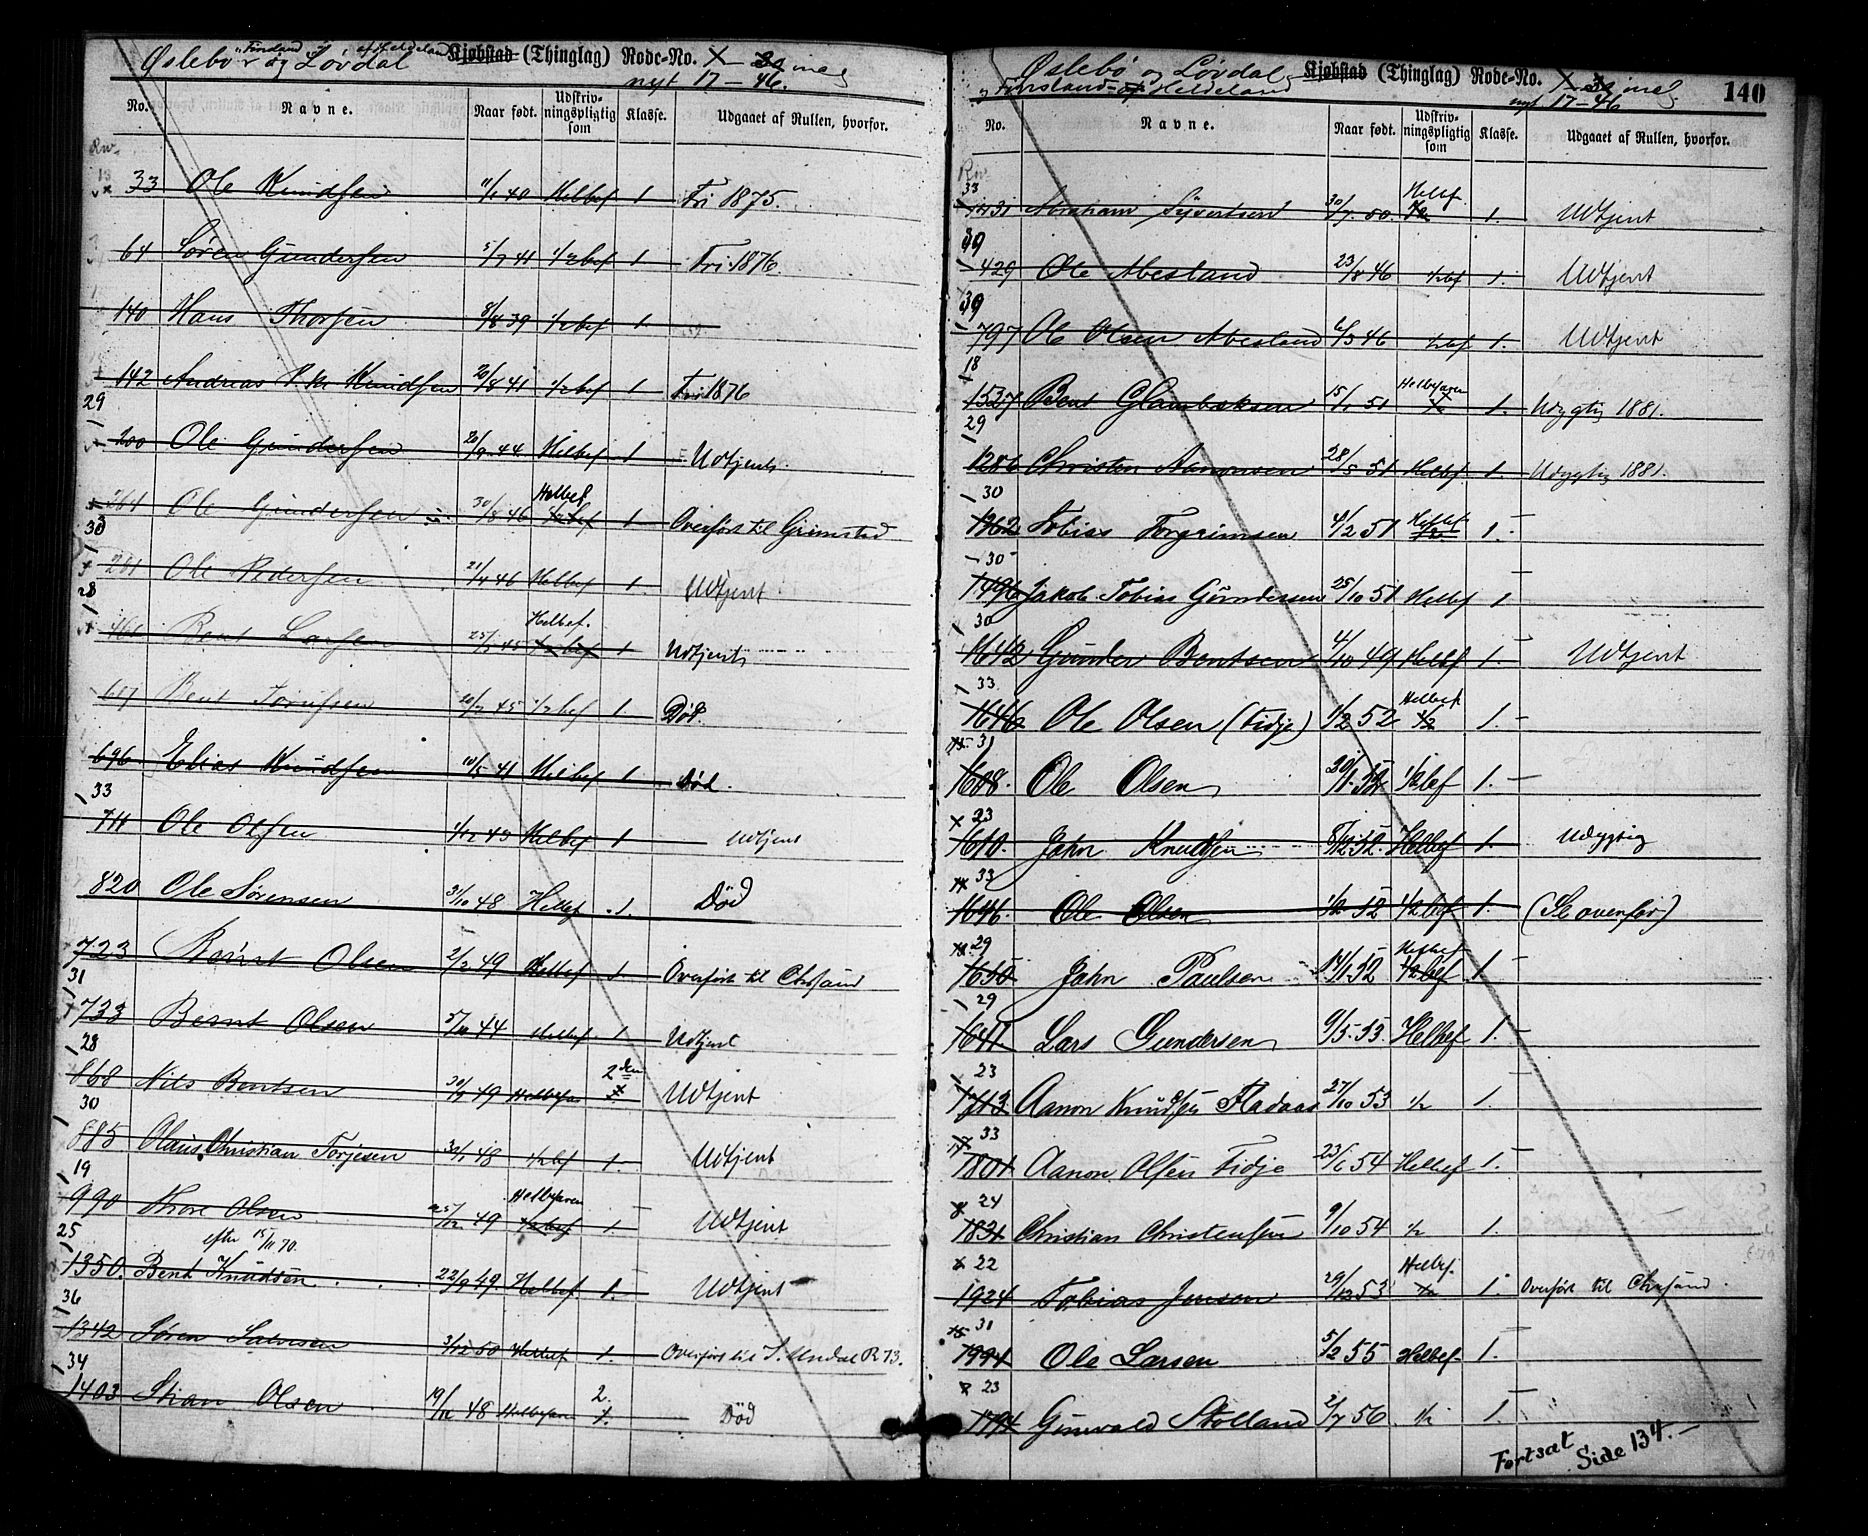 Øslebø og Løvdal Kjøbstad (Thinglag) Rode-No.
Finsland Heldeland
nyt 17 – 46.
No. Navne. Naar født. Udskriv-ningspligtig som Klasse. Udgaaet af Rullen, hvorfor.
33 Ole Knudsen 11/1 40 Helbef 1 Fri 1875.
64 Søren Gundersen 5/7 41 1/2bef 1 Fri 1876
140 Hans Thorsen 8/8 39 1/2bef 1
142 Andreas Knudsen 20/8 41 1/2bef 1 Fri 1876
29
200 Ole Gundersen 44 Helbef 1 Udtjent
Helbef
261 Ole Gundersen 30/8 46 1/2bef 1 Overført til Grimstad
30
261 Ole Pedersen 21/4 46 Helbef 1. Udtjent
28
Helbef.
461 Bent Larsen 45 1/2bef 1 Udtjent
Bent 45 1/2bef 1 Død.
696 Elias Knudsen 10/5 41 Helbef 1 Død.
33
711 Ole Olsen Helbef 1 Udtjent
820 Ole Sørensen 31/10 48 Helbef 1. Død
723 Bernt Olsen 2/2 49 Helbef 1 Overført til Chrsand
31
733 Bernt Olsen 44 Helbef 1 Udtjent
28
2den
868 Nils Bentsen 49 Helbefar Udtjent
30
885 Olaus Christian Torjesen 48 1/2bef 1. Udtjent
19
Helbefaren
990 Thore Olsen 25/12 49 1/2bef 1 Udtjent
25
efter 15/11 70.
1350. Bent Knudsen 22/9 49. Helbef 1. Udtjent
36
1342 Søren Salvesen 3/12 50 Helbef 1. Overført til S. Undal R 73.
34
2.
1403 Stian Olsen 48 Helbefaren 1. Død
Øslebø og Løvdal Kjøbstad (Thinglag) Rode-No. 140
Finsland Heldeland
nyt 17 – 46
No. Navne. Naar født. Udskriv-ningspligtig som Klasse. Udgaaet af Rullen, hvorfor.
33 Helbef
Abraham Syvertsen 30/7 50 1/2 1. Udtjent
39
429 Ole Abesland 23/8 46 1/2bef 1. Udtjent
39
797 Ole Olsen Abesland 6/3 46 1/2bef 1. Udtjent
18 Helbefaren
1527 Bent Glambeksen 15/1 51 1/2 1. Udygtig 1881.
29
1286 Christen Aanonsen 28/5 51 Helbef 1. Udygtig 1881.
30
1362 Tobias Torgrimsen 4/12 51 Helbef 1/2 1. –
30
1496 Jakob Tobias Gundersen 25/10 51 Helbef 1
30
1642 Gunder Bentsen 4/10 49 Helbef 1. Udtjent
33 Helbef
1646 Ole Olsen (Fidje) 1/2 52 1/2 1. –
31
1608. Ole Olsen 52 1/2bef 1. –
23
1610. John Knudsen 52. Helbef 1. Udygtig
33
1646. Ole Olsen 1/2 52 1/2bef 1. (Se ovenfor)
29 Helbef
1650 John Paulsen 52 1/2bef 1
29
1641 Lars Gundersen 9/5. 53. Helbef 1. –
23
1713 Aanon Knudsen Fladaas 27/10 53 1/2 1. –
33
1801 Aanon Olsen Fidje 23/6 54 Helbef 1. –
24
1831 Christian Christensen 9/10 54 1/2 1.
22 Helbef.
1924 Tobias Jensen 29/12 53 1/2 1. Overført til Chrsand.
31
1991 Ole Larsen 5/2 55 Helbef. 1. –
23
1794 Gunvald Stølland 2/7 56 1/2 1. –
Fortsat Side 134. –